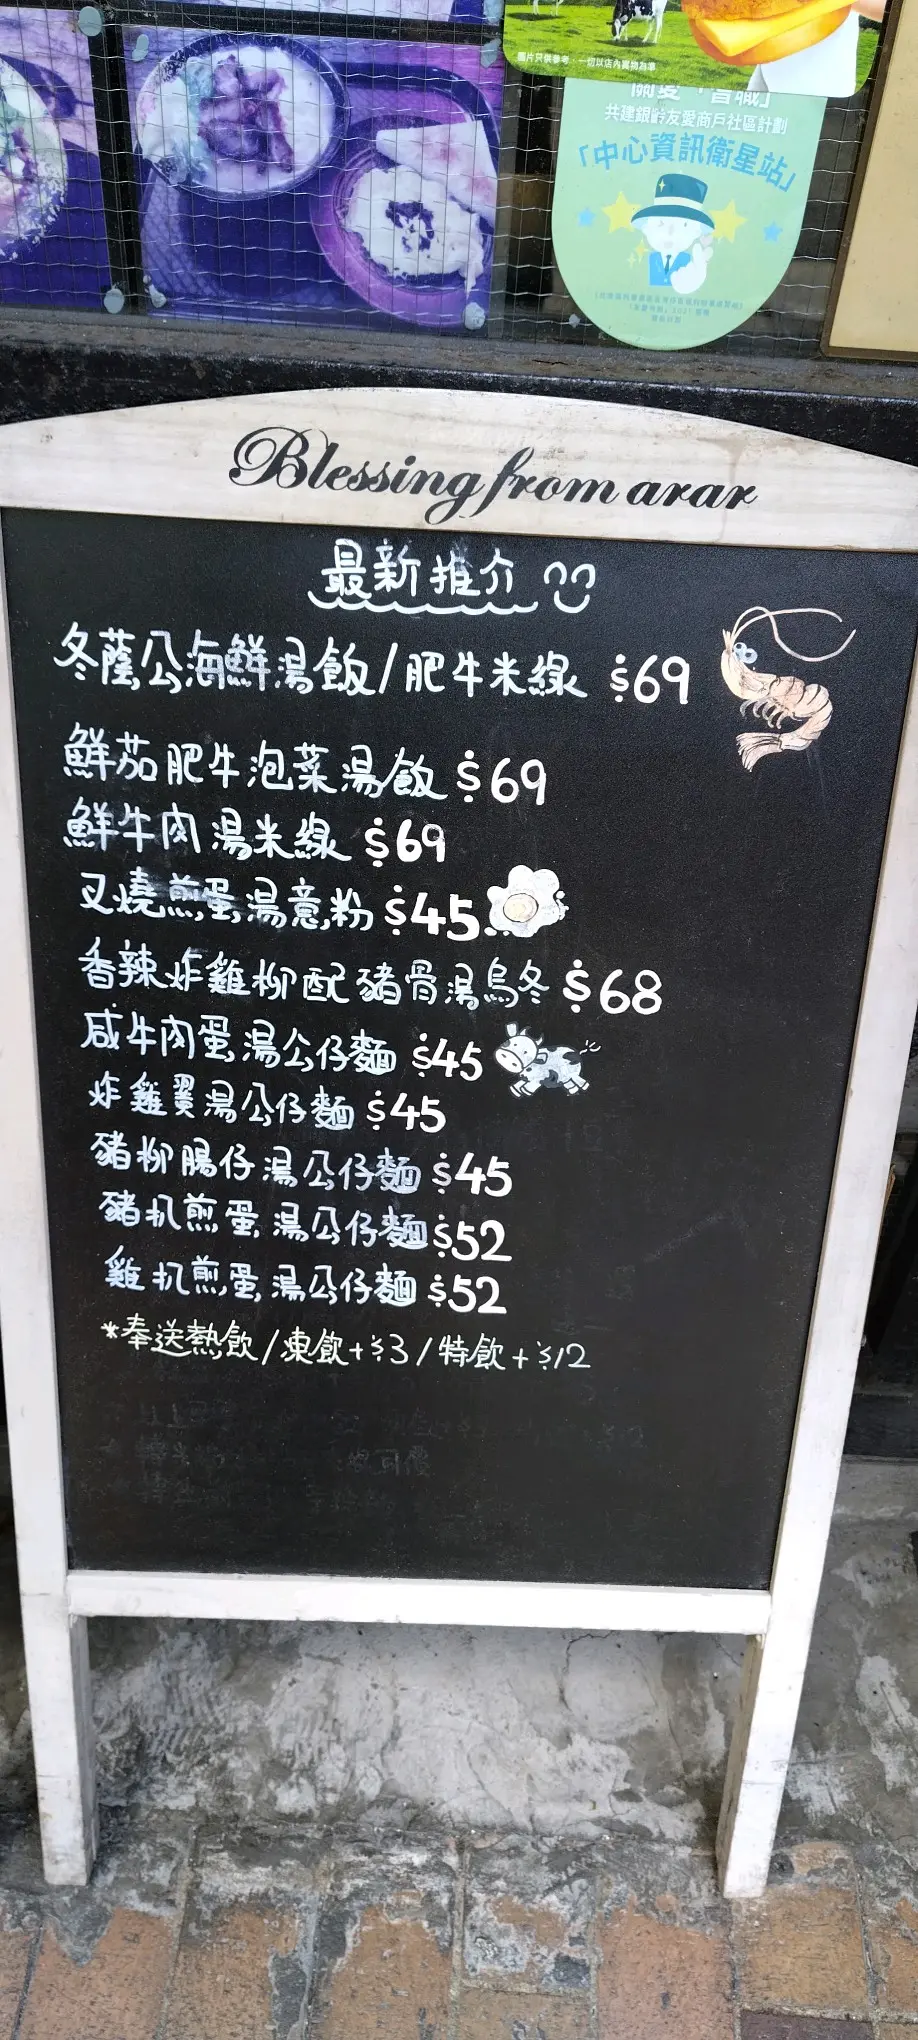 圖片只供參考，一切以店內實物為準
關愛「智職」
共建銀齡友愛商戶社區計劃
「中心資訊衛星站」
Blessing from arar
最新推介
冬蔭公海鮮湯飯/肥牛米線 $69
鮮茄肥牛泡菜湯飯 $69
鮮牛肉湯米線 $69
叉燒煎蛋湯意粉 $45
香辣炸雞柳配豬骨湯烏冬 $68
咸牛肉蛋湯公仔麵 $45
炸雞翼湯公仔麵 $45
豬柳腸仔湯公仔麵 $45
豬扒煎蛋湯公仔麵 $52
雞扒煎蛋湯公仔麵 $52
*奉送熱飲/凍飲+$3/特飲+$12